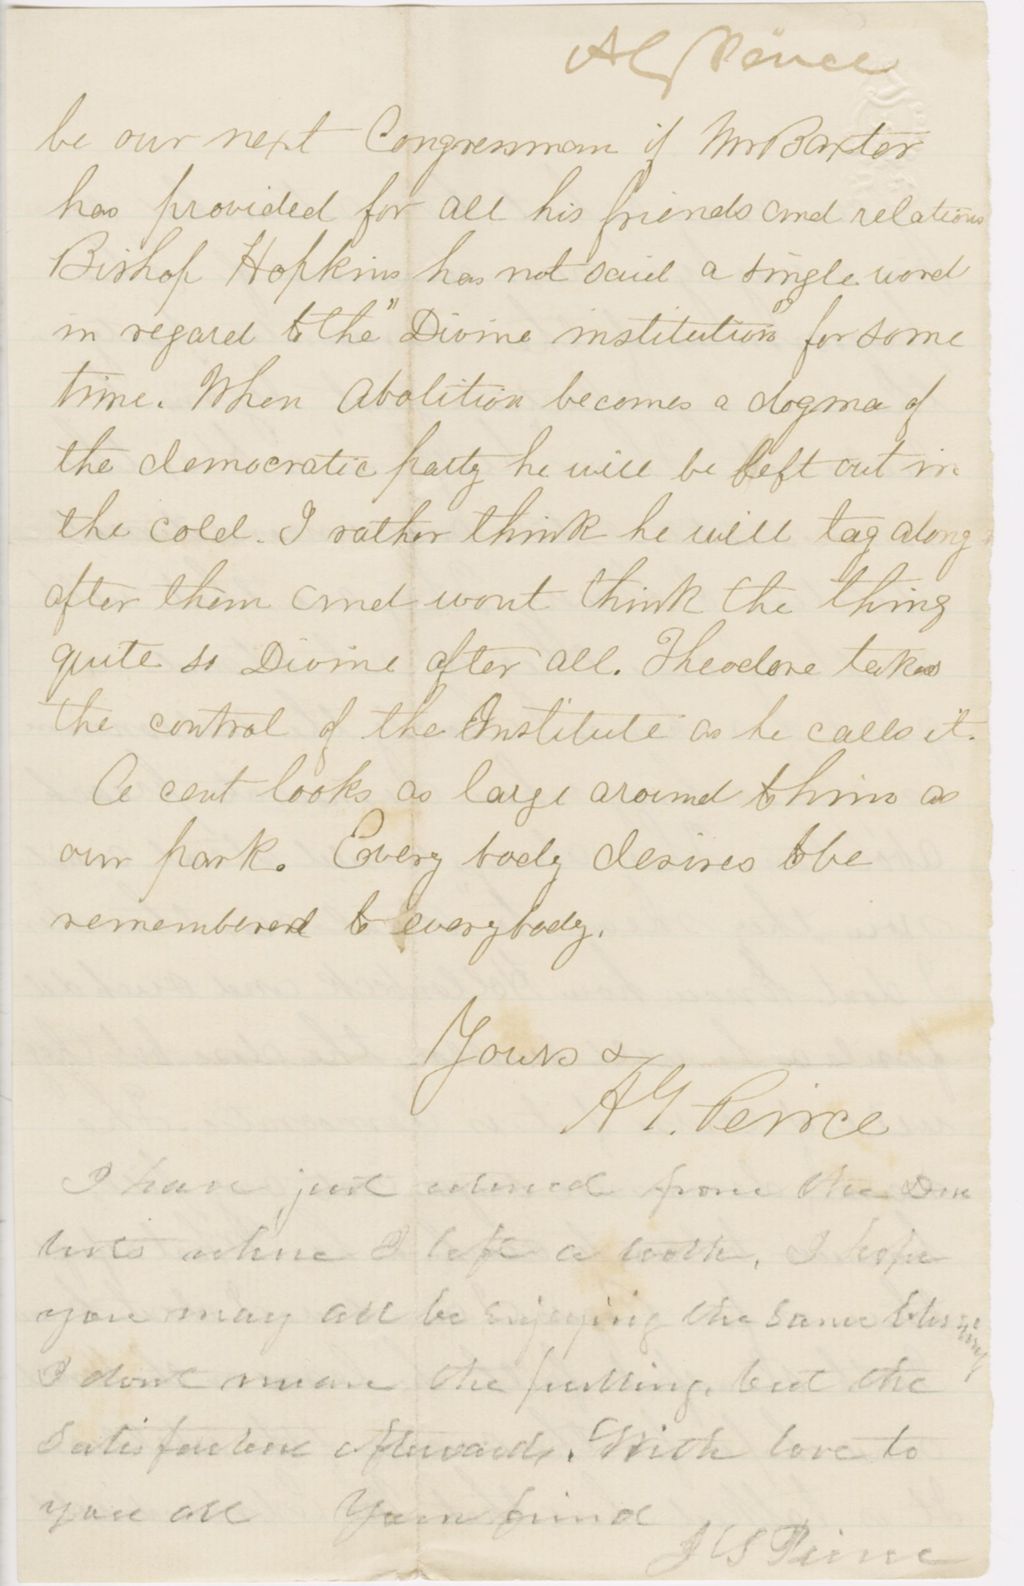 A G Peirce
be our next Congressman if Mr Baxter
has provided for all his friends and relations
Bishop Hopkins has not said a single word
in regard to the "Divine institution" for some
time. When Abolition becomes a dogma of
the democratic party he will be left out in
the cold. I rather think he will tag along
after them and wont think the thing
quite so Divine after all. Theodore takes
the control of the Institute as he calls it.
A cent looks as large around to him as
our park. Every body desires to be
remembered to everybody.
Yours &
A G. Peirce
I have just returned from the Den
tists where I left a tooth. I hope
you may all be enjoying the same blessing
I dont mean the pulling, but the
satisfaction afterwards. With love to
you all Your friend
Peirce